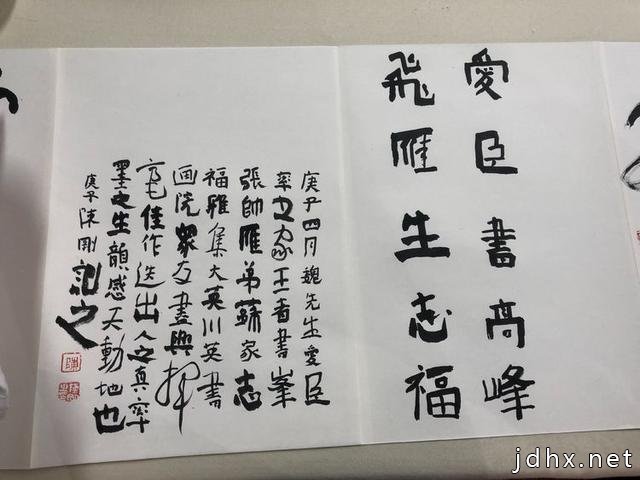 愛臣書高峰
飛雁生志福
庚子四月魏先生愛臣
率家王者書峯
張帥雁弟蘇家志
福雅集大英川英書
画院衆友畫興揮
毫佳作迭出人之真率
墨之生韻感天動地也
庚子陳剛記之
jdhx.net